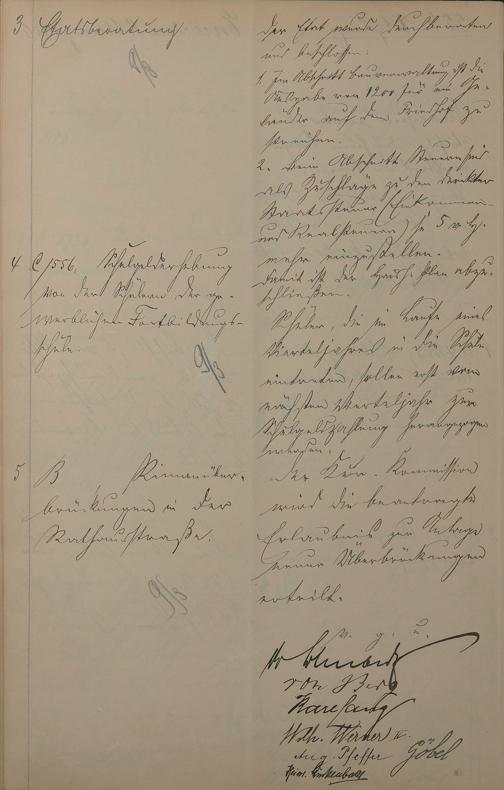 3 Etatsberatung
Der Etat wurde durchberaten
und beschlossen:
1. Im Abschnitt Bauverwaltung ist die
Ausgabe von 1200 für ein Ge-
bäude auf dem Friedhof zu
streichen.
2. Beim Abschnitt Steuern sind
als Zuschläge zu den direkten
Staatssteuern (Einkommen-
und Realsteuern) je 5 %
mehr einzustellen.
Damit ist der Haush. Plan abzu-
schließen.
4 C/556. Schulgelderhebung
von den Schülern der ge-
werblichen Fortbildungs-
schule.
Schüler, die im Laufe eines
Vierteljahres in die Schule
eintreten, sollen erst vom
nächsten Vierteljahr zur
Schulgeldzahlung herangezogen
werden.
5 B Rinnenüber-
brückungen in der
Rathausstraße.
Der Kur-Kommission
wird die beantragte
Erlaubnis zur Anlage
neuer Überbrückungen
erteilt.
v. g. u.
Karl
Wilh. Werner II.
Aug. Pfeffer Göbel